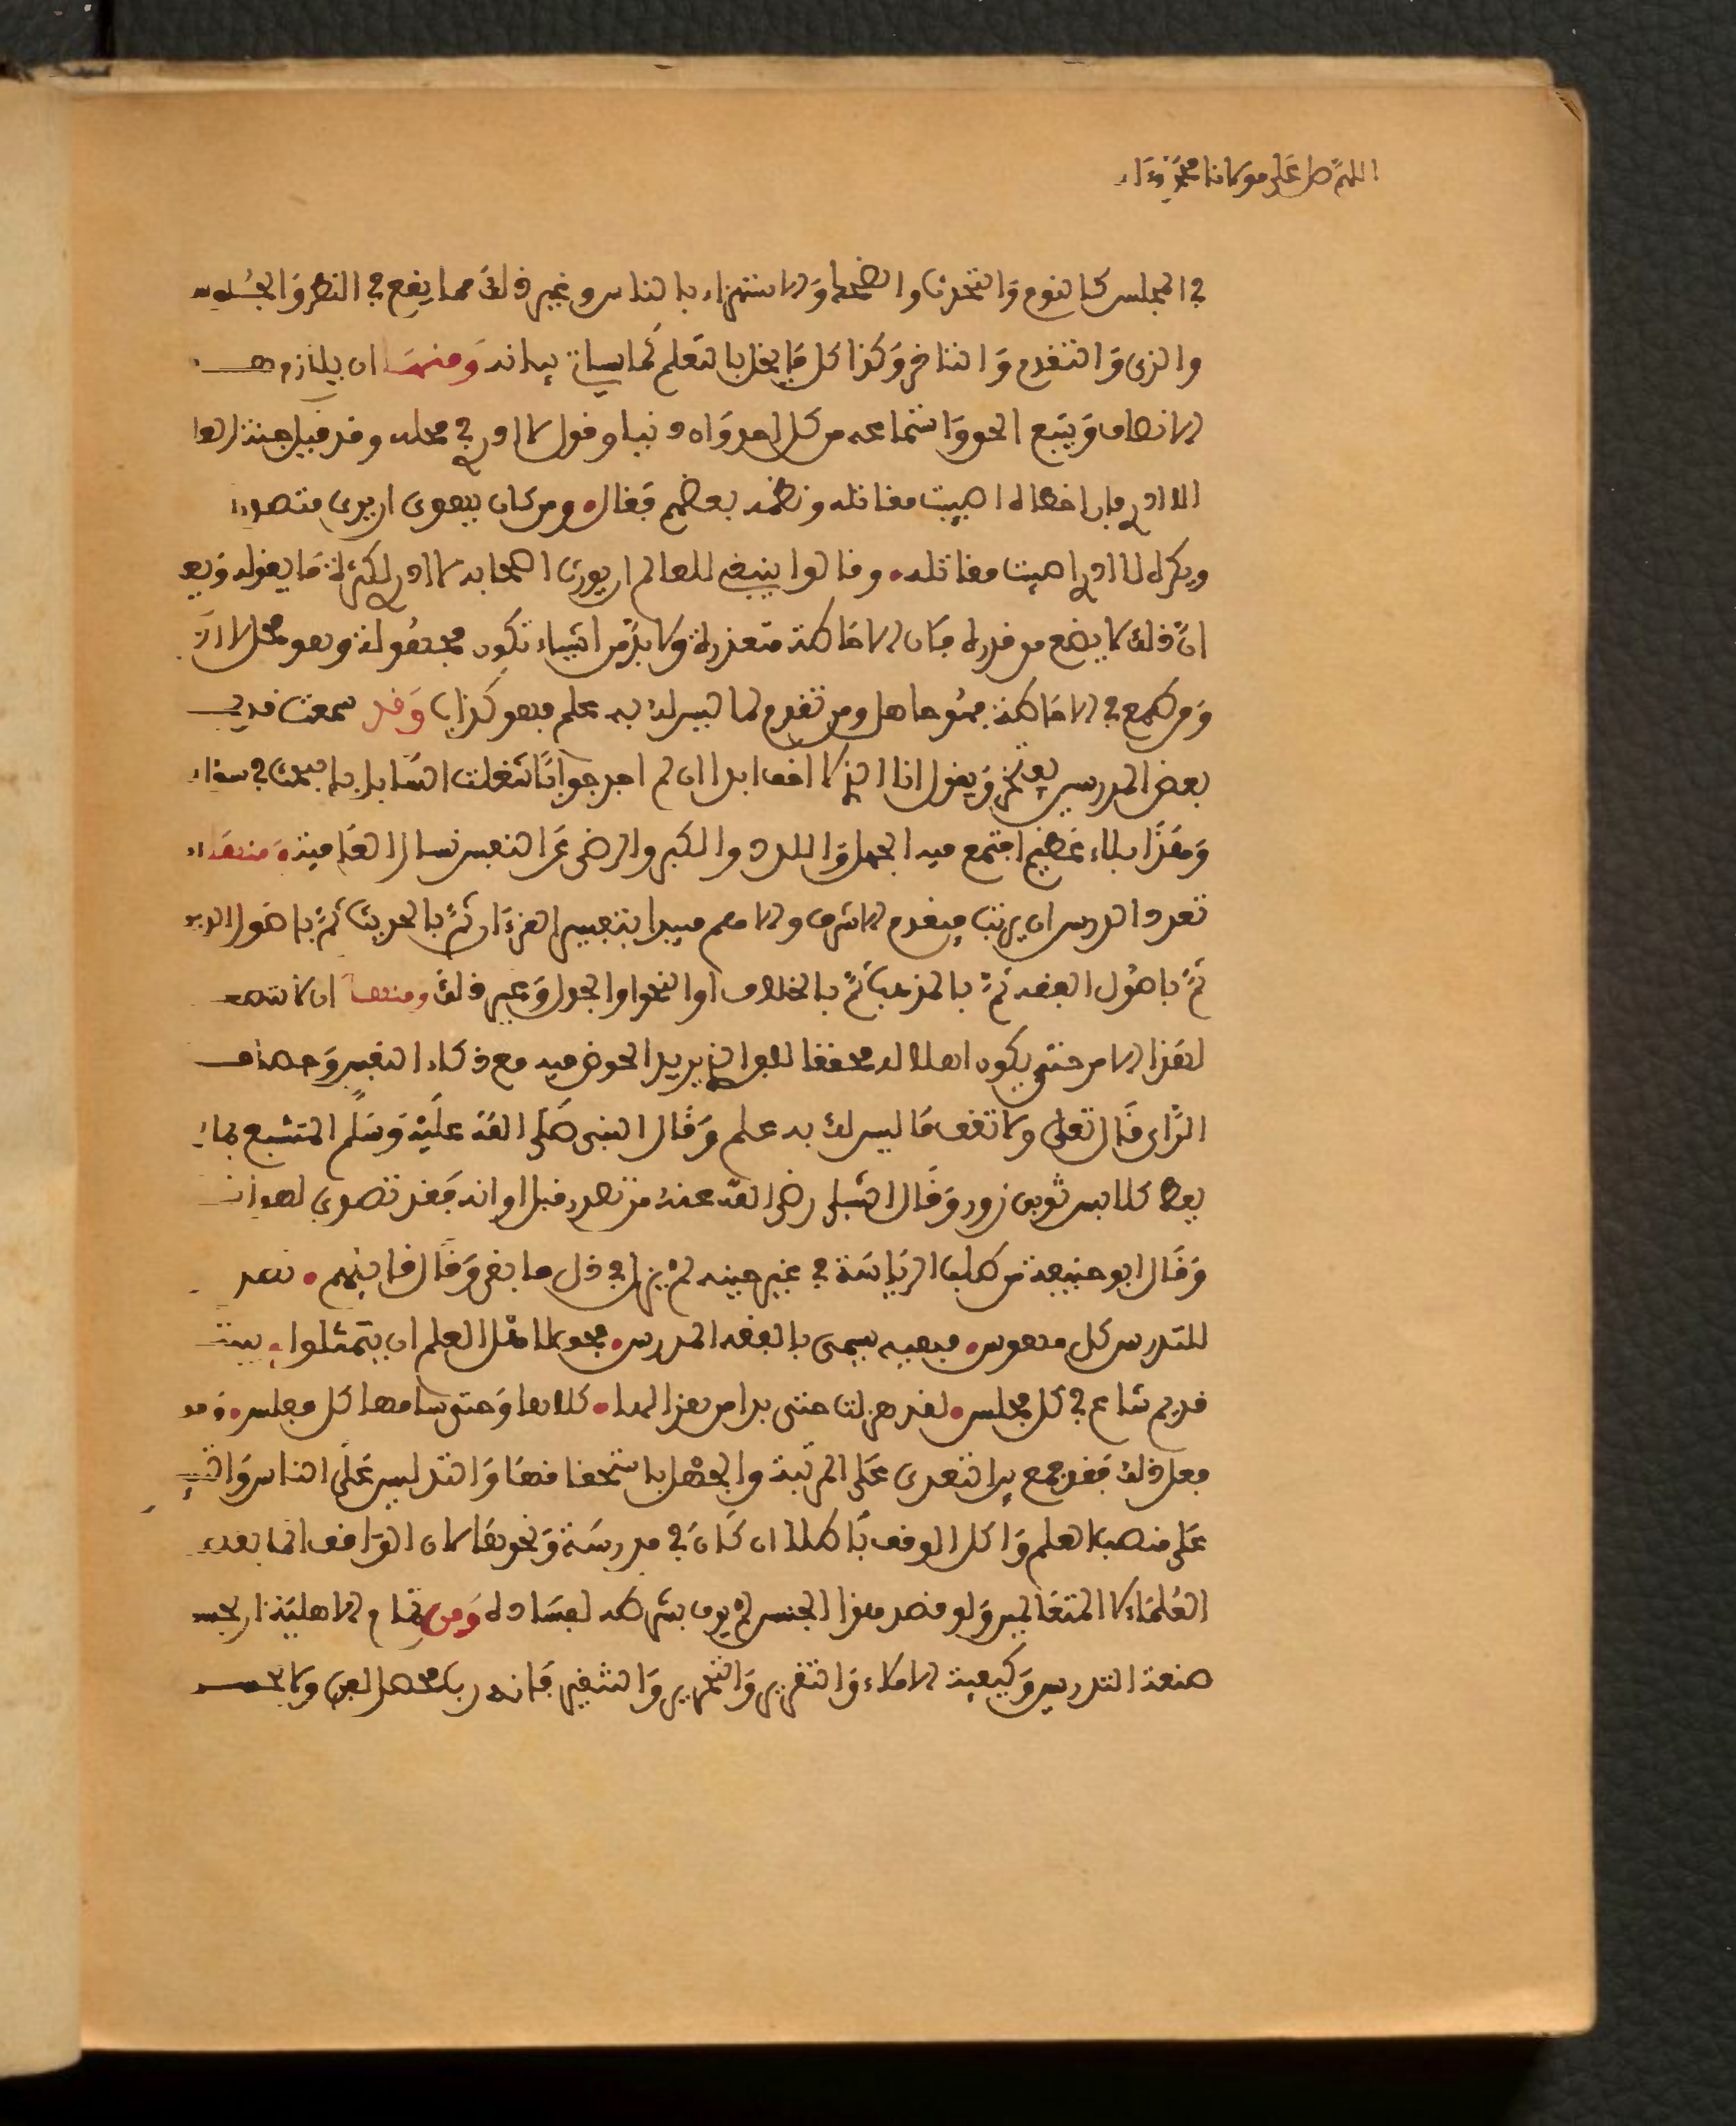 اللهم صل على مولانا محمد وءاله
في المجلس كالنوم والتحدث والضحك والاستهزاء بالناس وغير ذلك مما يقع في النظر والجلوس
والزي والتقدم والتاخر وكذا كل ما يخل بالتعلم كما سياتي بيانه ومنها ان يلازم
الانصاف ويتبع الحق واستماعه من كل احد واه دنيا وقول لا ادري في محله وقد قيل جنة العالم
لا ادري فان اخطاها اصيبت مقاتله ونظمه بعضهم فقال ومن كان يهوى ان يرى متصدرا
ويكره لا ادري اصيبت مقاتله وقالوا ينبغي للعالم ان يورث اصحابه لا ادري لكثرة ما يقوله
ان ذلك لا يضع من قدره فان الاحاطة متعذرة ولا بد من اشياء تكون مجهولة وهو محل لا ادري
ومن طمع في الاحاطة فهو جاهل ومن تقدم لما ليس له به علم فهو كذاب وقد سمعت قديما
بعض المدرسين يفتخر ويقول انا الذي لا اقف ابدا ان لم اجد جوابا شغلت السايل بالبحث في سؤاله
وهذا بلاء عظيم اجتمع فيه الجهل واللدد والكبر والرضى عن النفس نسال الله العافية ومنها اذا
تعدد الدرس ان يرتب فيقدم الاشرف والاهم فيبدا بتفسير القرءان ثم بالحديث ثم باصول الدين
ثم باصول الفقه ثم بالمذهب ثم بالخلاف او النحو او الجدل وغير ذلك ومنها ان لا ينتصب
لهذا الامر حتى يكون اهلا له محققا للفن الذي يريد الخوض فيه مع ذكاء النفس وحصافة
الراي قال تعلى ولا تقف ما ليس لك به علم وقال النبي صلى الله عليه وسلم المتشبع بما لم
يعط كلابس ثوبي زور وقال الشبلي رضي الله عنه من تصدر قبل اوانه فقد تصدى لهوانه
وقال ابو حنيفة من طلب الرياسة في غير حينه لم يزل في ذل ما بقي وقال قايلهم تصدر
للتدريس كل مهوس فقيه يسمى بالفقه المدرس فحق لاهل العلم ان يتمثلوا ببيت
قديم شاع في كل مجلس لقد هزلت حتى بدا من هزالها كلاها وحتى سامها كل مفلس ومن
فعل ذلك فقد جمع بين التعدي على المرتبة والجهل باستحقاقها والتدليس على الناس
على منصب العلم واكل الوقف باطلا ان كان في مدرسة ونحوها لان الواقف انما يقصد
العلماء لا المتعالمين ولو قصد هذا الجنس لم يوف بشرطه لفساده ومن تمام الاهلية ان يحسن
صنعة التدريس وكيفية الالقاء والتقرير والتحرير والتفهيم فانه ربما يحصل الفن ولا يحسن